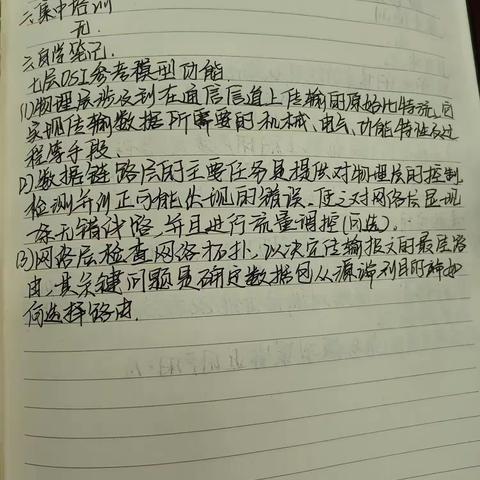 二、集中培训
无.
三、自学笔记.
七层OSI参考模型功能.
(1)物理层涉及到在通信信道上传输的原始比特流,同
实现传输数据所需要的机械、电气、功能特性及过
程等手段.
(2)数据链路层的主要任务是提供对物理层的控制,
检测并纠正可能出现的错误,使之对网络层呈现
一条无错线路,并且进行流量调控(可选).
(3)网络层检查网络拓扑,以决定传输报文的最佳路
由,其关键问题是确定数据包从源端到目的端如
何选择路由.